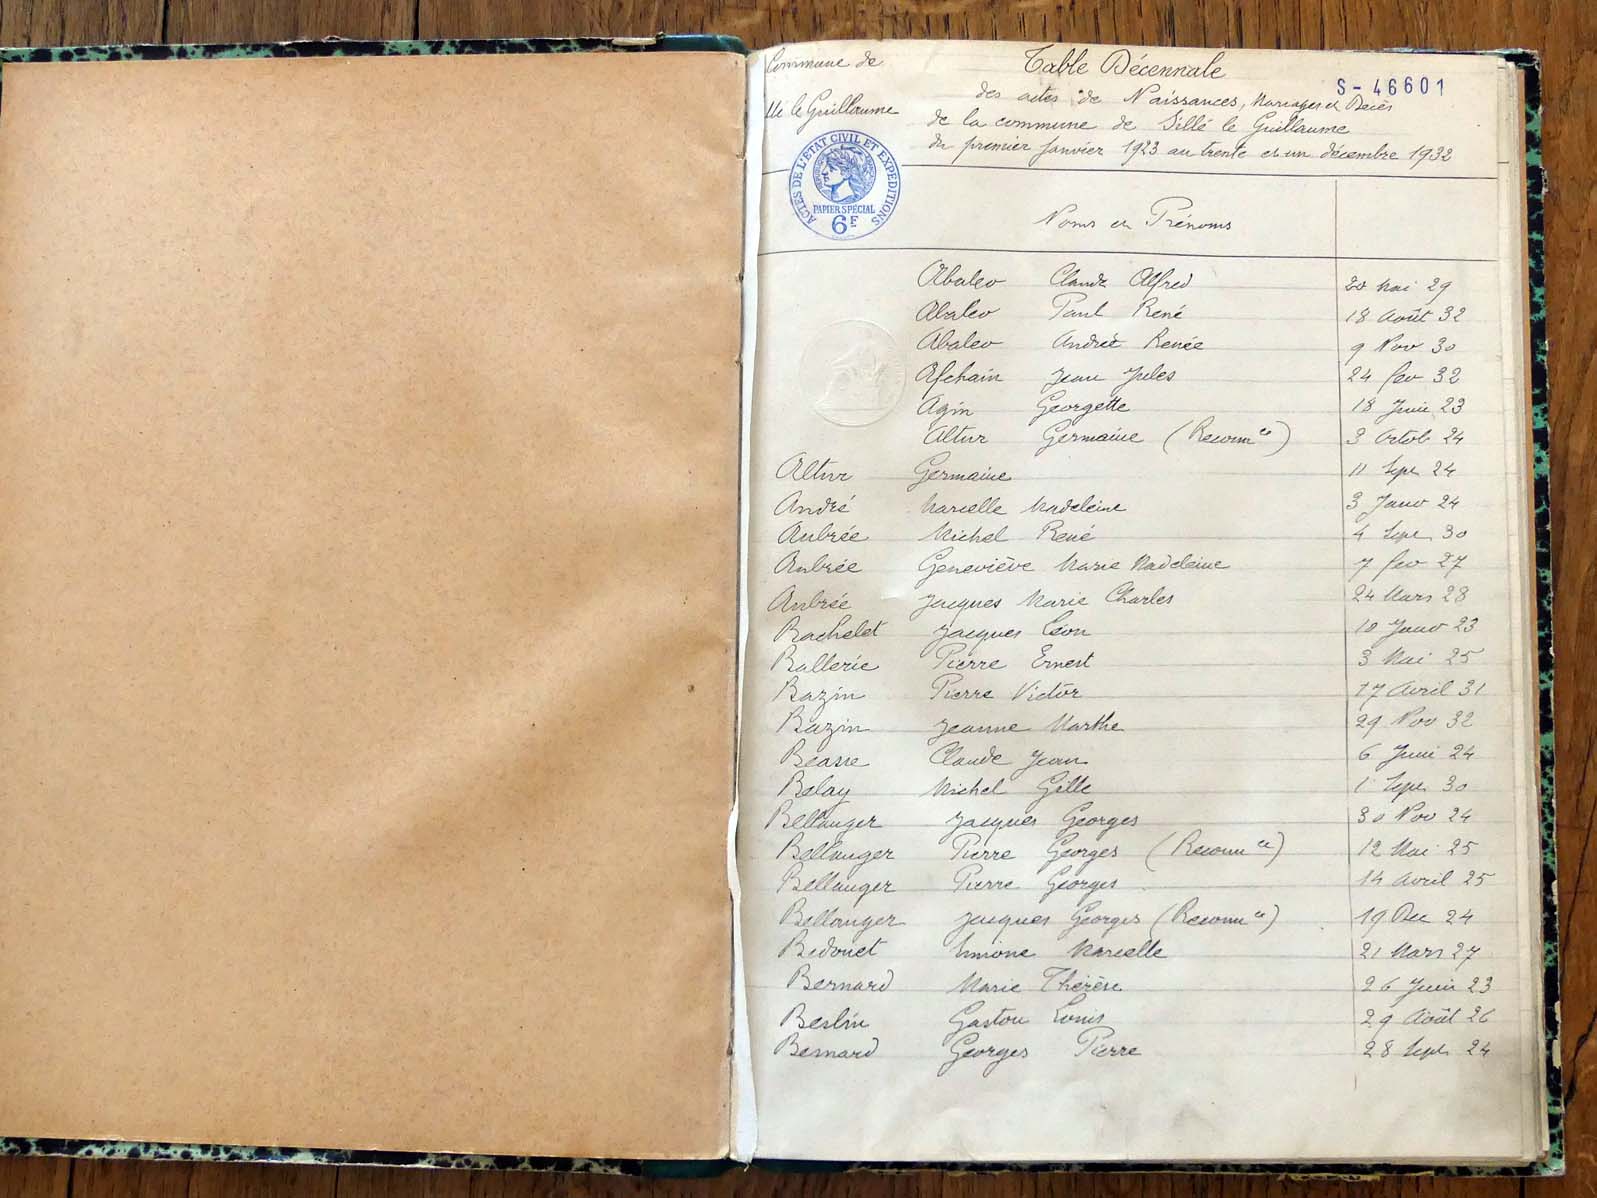 Commune de
Table Décennale
S-46601
des actes de Naissances, Mariages et Décès
llé le Guillaume
de la commune de Sillé le Guillaume
du premier Janvier 1923 au trente et un décembre 1932
ACTES DE L'ÉTAT CIVIL ET EXPÉDITIONS
PAPIER SPÉCIAL
6F
Noms et Prénoms
Abalev Claude Alfred 20 Mai 29
Abalev Paul René 18 Août 32
Abalev Andrée Renée 9 Nov 30
Afchain Jean Jules 24 fev 32
Agin Georgette 18 Juin 23
Altur Germaine (Reconn ce) 3 Octob 24
Altur Germaine 11 Sept 24
André Marcelle Madeleine 3 Janv 24
Aubrée Michel René 4 Sept 30
Aubrée Geneviève Marie Madeleine 7 fev 27
Aubrée Jacques Marie Charles 24 Mars 28
Bachelet Jacques Léon 10 Janv 23
Ballerie Pierre Ernest 3 Mai 25
Bazin Pierre Victor 17 Avril 31
Bazin Jeanne Marthe 29 Nov 32
Beasse Claude Jean 6 Juin 24
Belay Michel Gille 1 Sept 30
Bellanger Jacques Georges 30 Nov 24
Bellanger Pierre Georges (Reconn ce) 12 Mai 25
Bellanger Pierre Georges 14 Avril 25
Bellanger Jacques Georges (Reconn ce) 19 Dec 24
Bedouet Simone Marcelle 21 Mars 27
Bernard Marie Thérèse 26 Juin 23
Beslin Gaston Louis 29 Août 26
Besnard Georges Pierre 28 Sept 24